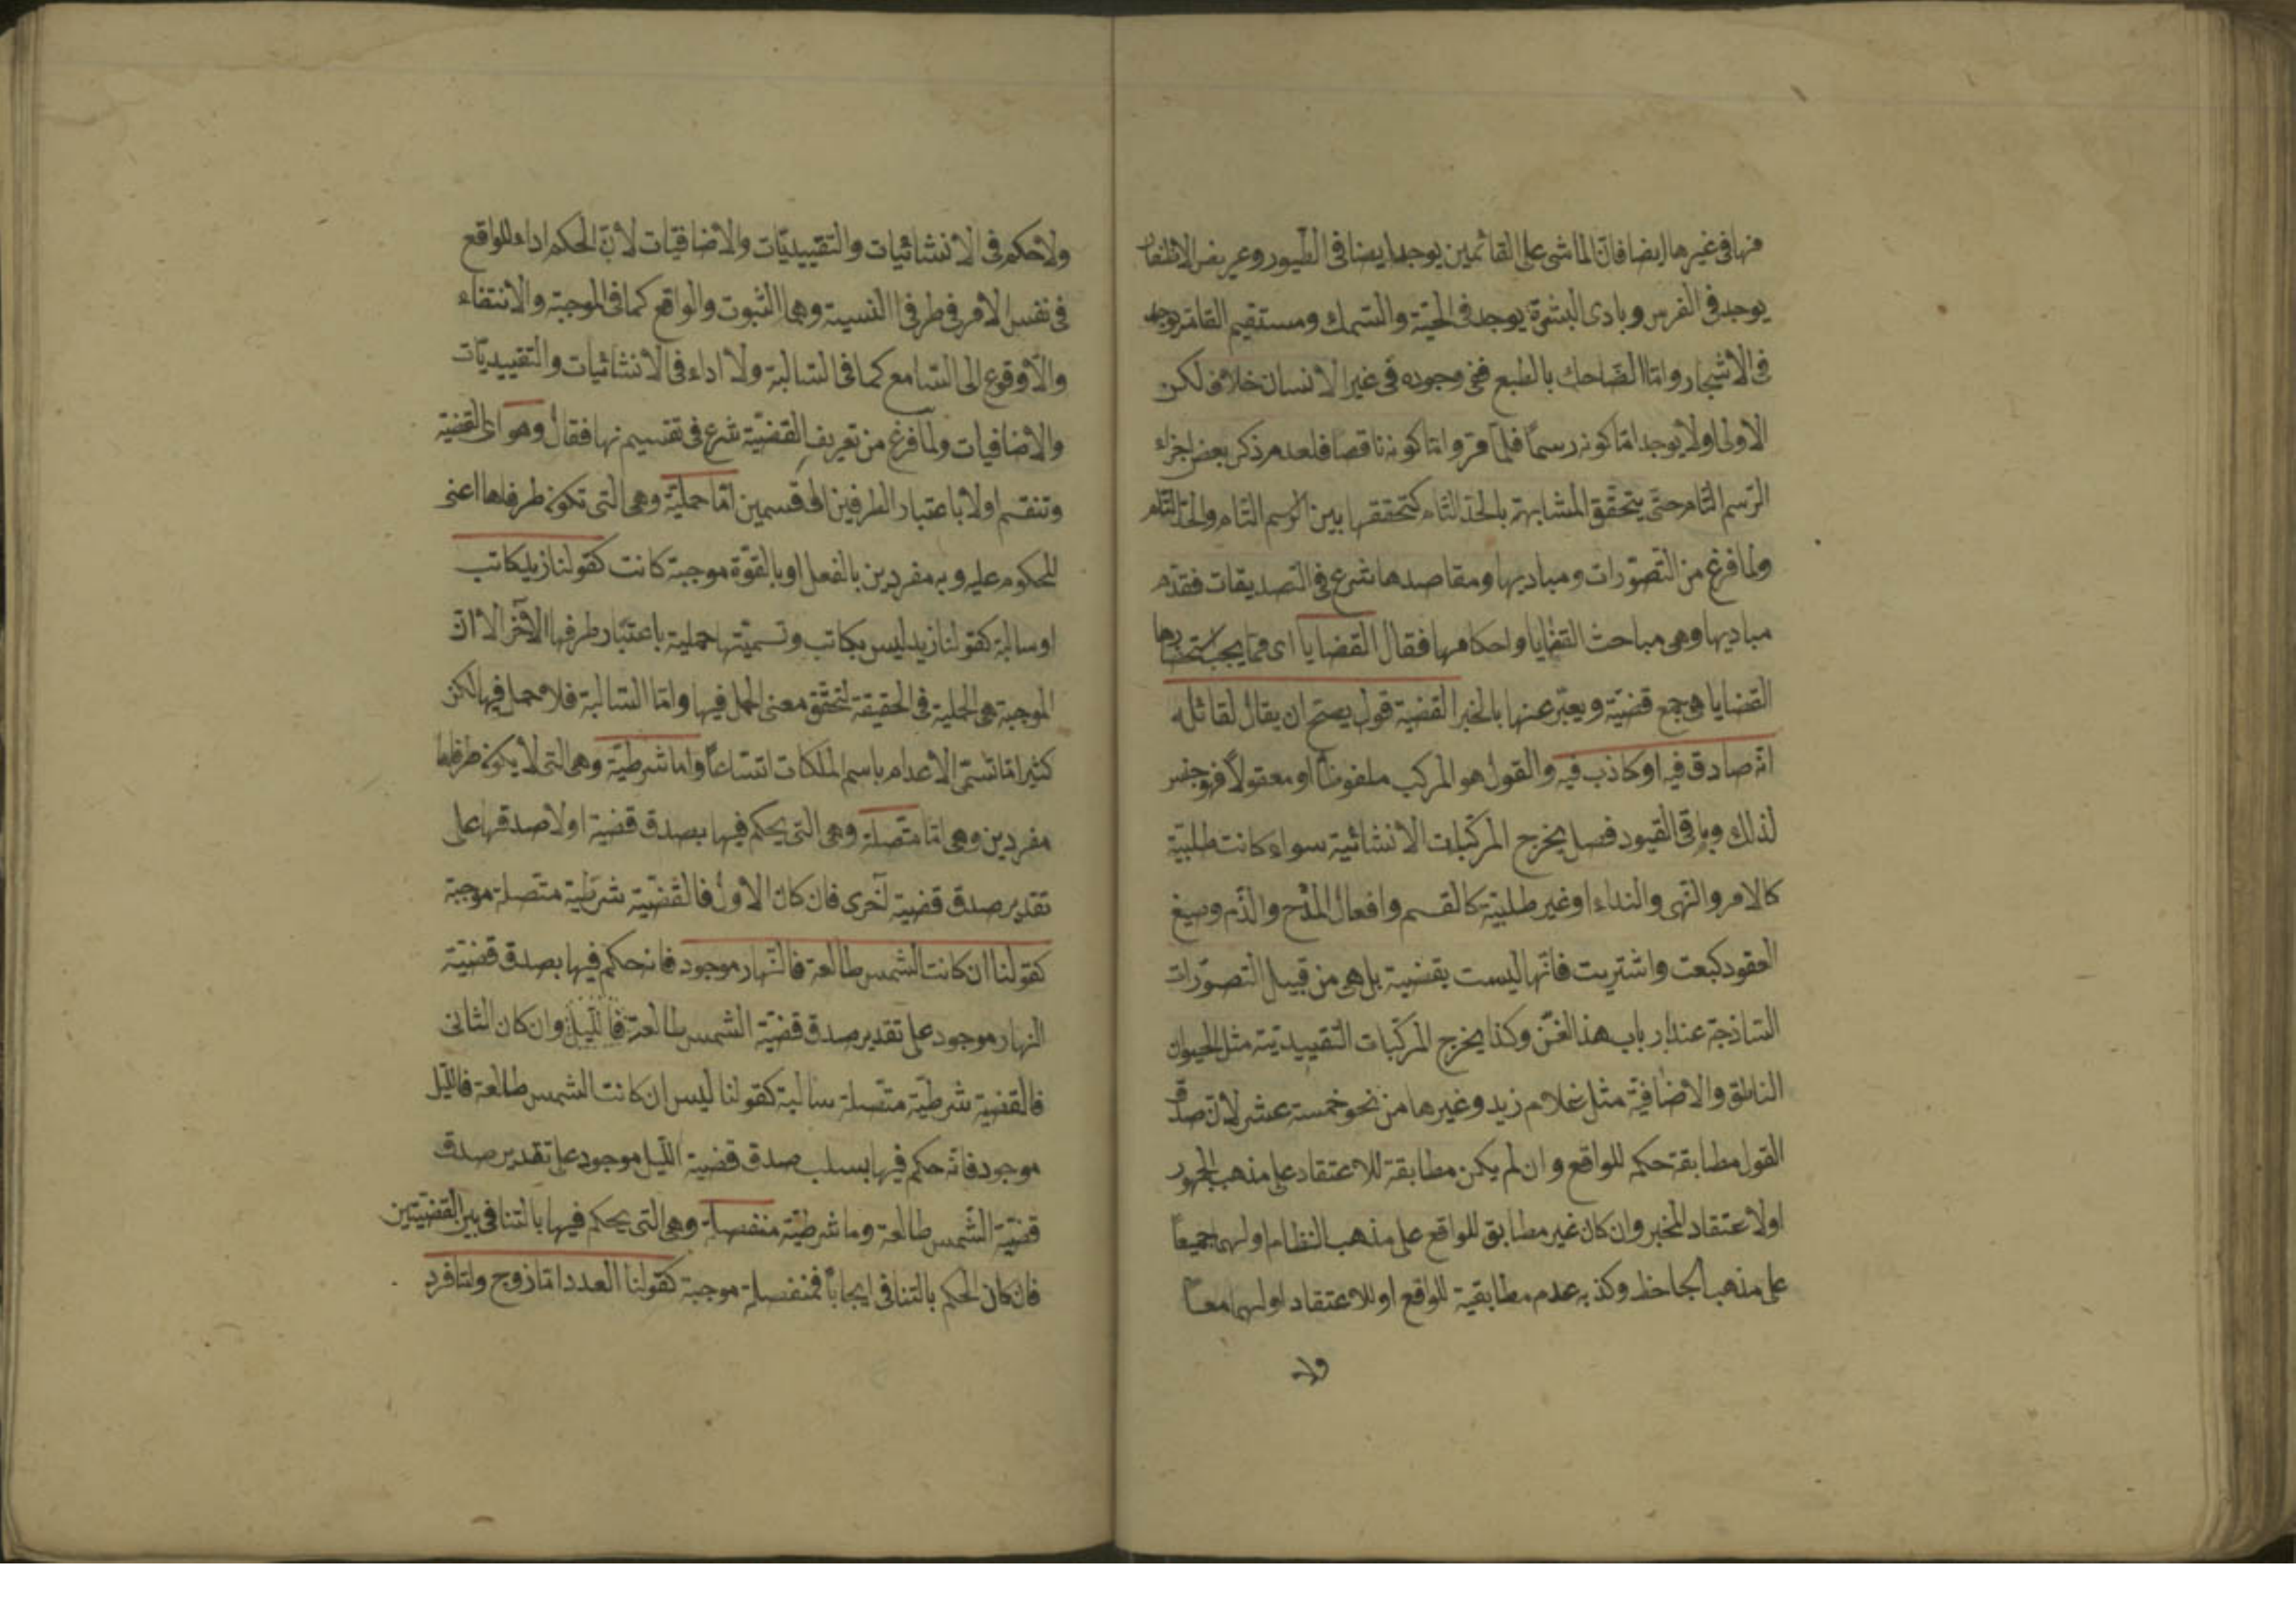 منها فى غيرها ايضا فان الماشى على القائمين يوجد ايضا فى الطيور وعريض الاظفار
يوجد فى الفرس وبادى البشرة يوجد فى الحية والسمك ومستقيم القامة يوجد
فى الاشجار واما الضاحك بالطبع ففى وجوده فى غير الانسان خلاف لكن
الاولى اولا يوجد اما كونه رسما فلما مر واما كونه ناقصا فلعدم ذكر بعض اجزاء
الرسم التام حتى يتحقق المشابهة بالحد التام كتحققها بين الرسم التام والحد التام
ولما فرغ من التصورات ومباديها ومقاصدها شرع فى التصديقات فقدم
مباديها وهى مباحث القضايا واحكامها فقال القضايا اى مما يجب استحضارها
القضايا هى جمع قضية ويعبر عنها بالخبر القضية قول يصح ان يقال لقائله
انه صادق فيه او كاذب فيه والقول هو المركب ملفوظا او معقولا فهو جنس
لذلك وباقى القيود فصل يخرج المركبات الانشائية سواء كانت طلبية
كالامر والنهى والنداء او غير طلبية كالقسم وافعال المدح والذم وصيغ
العقود كبعت واشتريت فانها ليست بقضية بل هى من قبيل التصورات
الساذجة عند ارباب هذا الفن وكذا يخرج المركبات التقييدية مثل الحيوان
الناطق والاضافية مثل غلام زيد وغيرها من نحو خمسة عشر لان صدق
القول مطابقة حكمه للواقع وان لم يكن مطابقة للاعتقاد على مذهب الجمهور
اولاعتقاد المخبر وان كان غير مطابق للواقع على مذهب النظام او لهما جميعا
على مذهب الجاحظ وكذبه عدم مطابقية للواقع او للاعتقاد او لهما معا
ولا
ولا حكم فى الانشائيات والتقييديات والاضافيات لان الحكم اداء للواقع
فى نفس الامر فى طرفى النسبة وهما الثبوت والواقع كما فى الموجبة والانتفاء
واللاوقوع الى السامع كما فى السالبة ولا اداء فى الانشائيات والتقييديات
والاضافيات ولما فرغ من تعريف القضية شرع فى تقسيمها فقال وهو اى القضية
وتنقسم اولا باعتبار الطرفين الى قسمين اما حملية وهى التى تكون طرفاها اعنى
المحكوم عليه وبه مفردين بالفعل او بالقوة موجبة كانت كقولنا زيد كاتب
او سالبة كقولنا زيد ليس بكاتب وتسميتها حملية باعتبار طرفها الآخر الا ان
الموجبة هى الحملية فى الحقيقة لتحقق معنى الحمل فيها واما السالبة فلا حمل فيها لكن
كثيرا ما تسمى الاعدام باسم الملكات اتساعا واما شرطية وهى التى لا يكون طرفاها
مفردين وهى اما متصلة وهى التى يحكم فيها بصدق قضية اولا صدقها على
تقدير صدق قضية اخرى فان كان الاول فالقضية شرطية متصلة موجبة
كقولنا ان كانت الشمس طالعة فالنهار موجود فانه حكم فيها بصدق قضية
النهار موجود على تقدير صدق قضية الشمس طالعة فالليل وان كان الثانى
فالقضية شرطية متصلة سالبة كقولنا ليس ان كانت الشمس طالعة فالليل
موجود فانه حكم فيها بسلب صدق قضية الليل موجود على تقدير صدق
قضية الشمس طالعة وما شرطية منفصلة وهى التى يحكم فيها بالتنافى بين القضيتين
فان كان الحكم بالتنافى ايجابا فمنفصلة موجبة كقولنا العدد اما زوج واما فرد